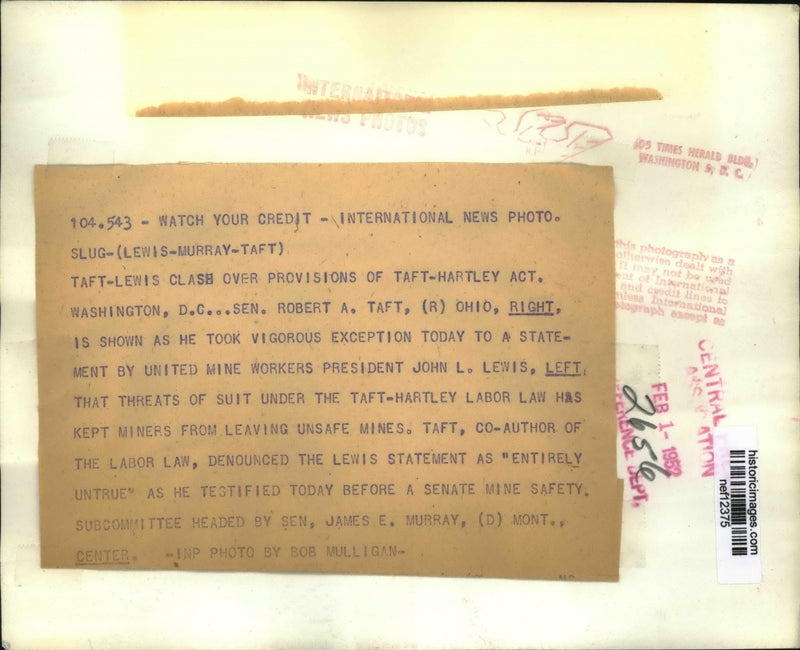 INTERNATIONAL
NEWS PHOTOS
605 TIMES HERALD BLDG.
WASHINGTON 5, D. C.
104.543 - WATCH YOUR CREDIT - INTERNATIONAL NEWS PHOTO.
SLUG-(LEWIS-MURRAY-TAFT)
TAFT-LEWIS CLASH OVER PROVISIONS OF TAFT-HARTLEY ACT.
WASHINGTON, D.C...SEN. ROBERT A. TAFT, (R) OHIO, RIGHT,
IS SHOWN AS HE TOOK VIGOROUS EXCEPTION TODAY TO A STATE-
MENT BY UNITED MINE WORKERS PRESIDENT JOHN L. LEWIS, LEFT,
THAT THREATS OF SUIT UNDER THE TAFT-HARTLEY LABOR LAW HAS
KEPT MINERS FROM LEAVING UNSAFE MINES. TAFT, CO-AUTHOR OF
THE LABOR LAW, DENOUNCED THE LEWIS STATEMENT AS "ENTIRELY
UNTRUE" AS HE TESTIFIED TODAY BEFORE A SENATE MINE SAFETY
SUBCOMMITTEE HEADED BY SEN, JAMES E. MURRAY, (D) MONT.,
CENTER. -INP PHOTO BY BOB MULLIGAN-
this photograph as a
otherwise dealt with
it may not be used
of International
and credit lines to
International
except as
CENTRAL
FEB 1 - 1952
DEPT.
2656
historicimages.com
nef12375